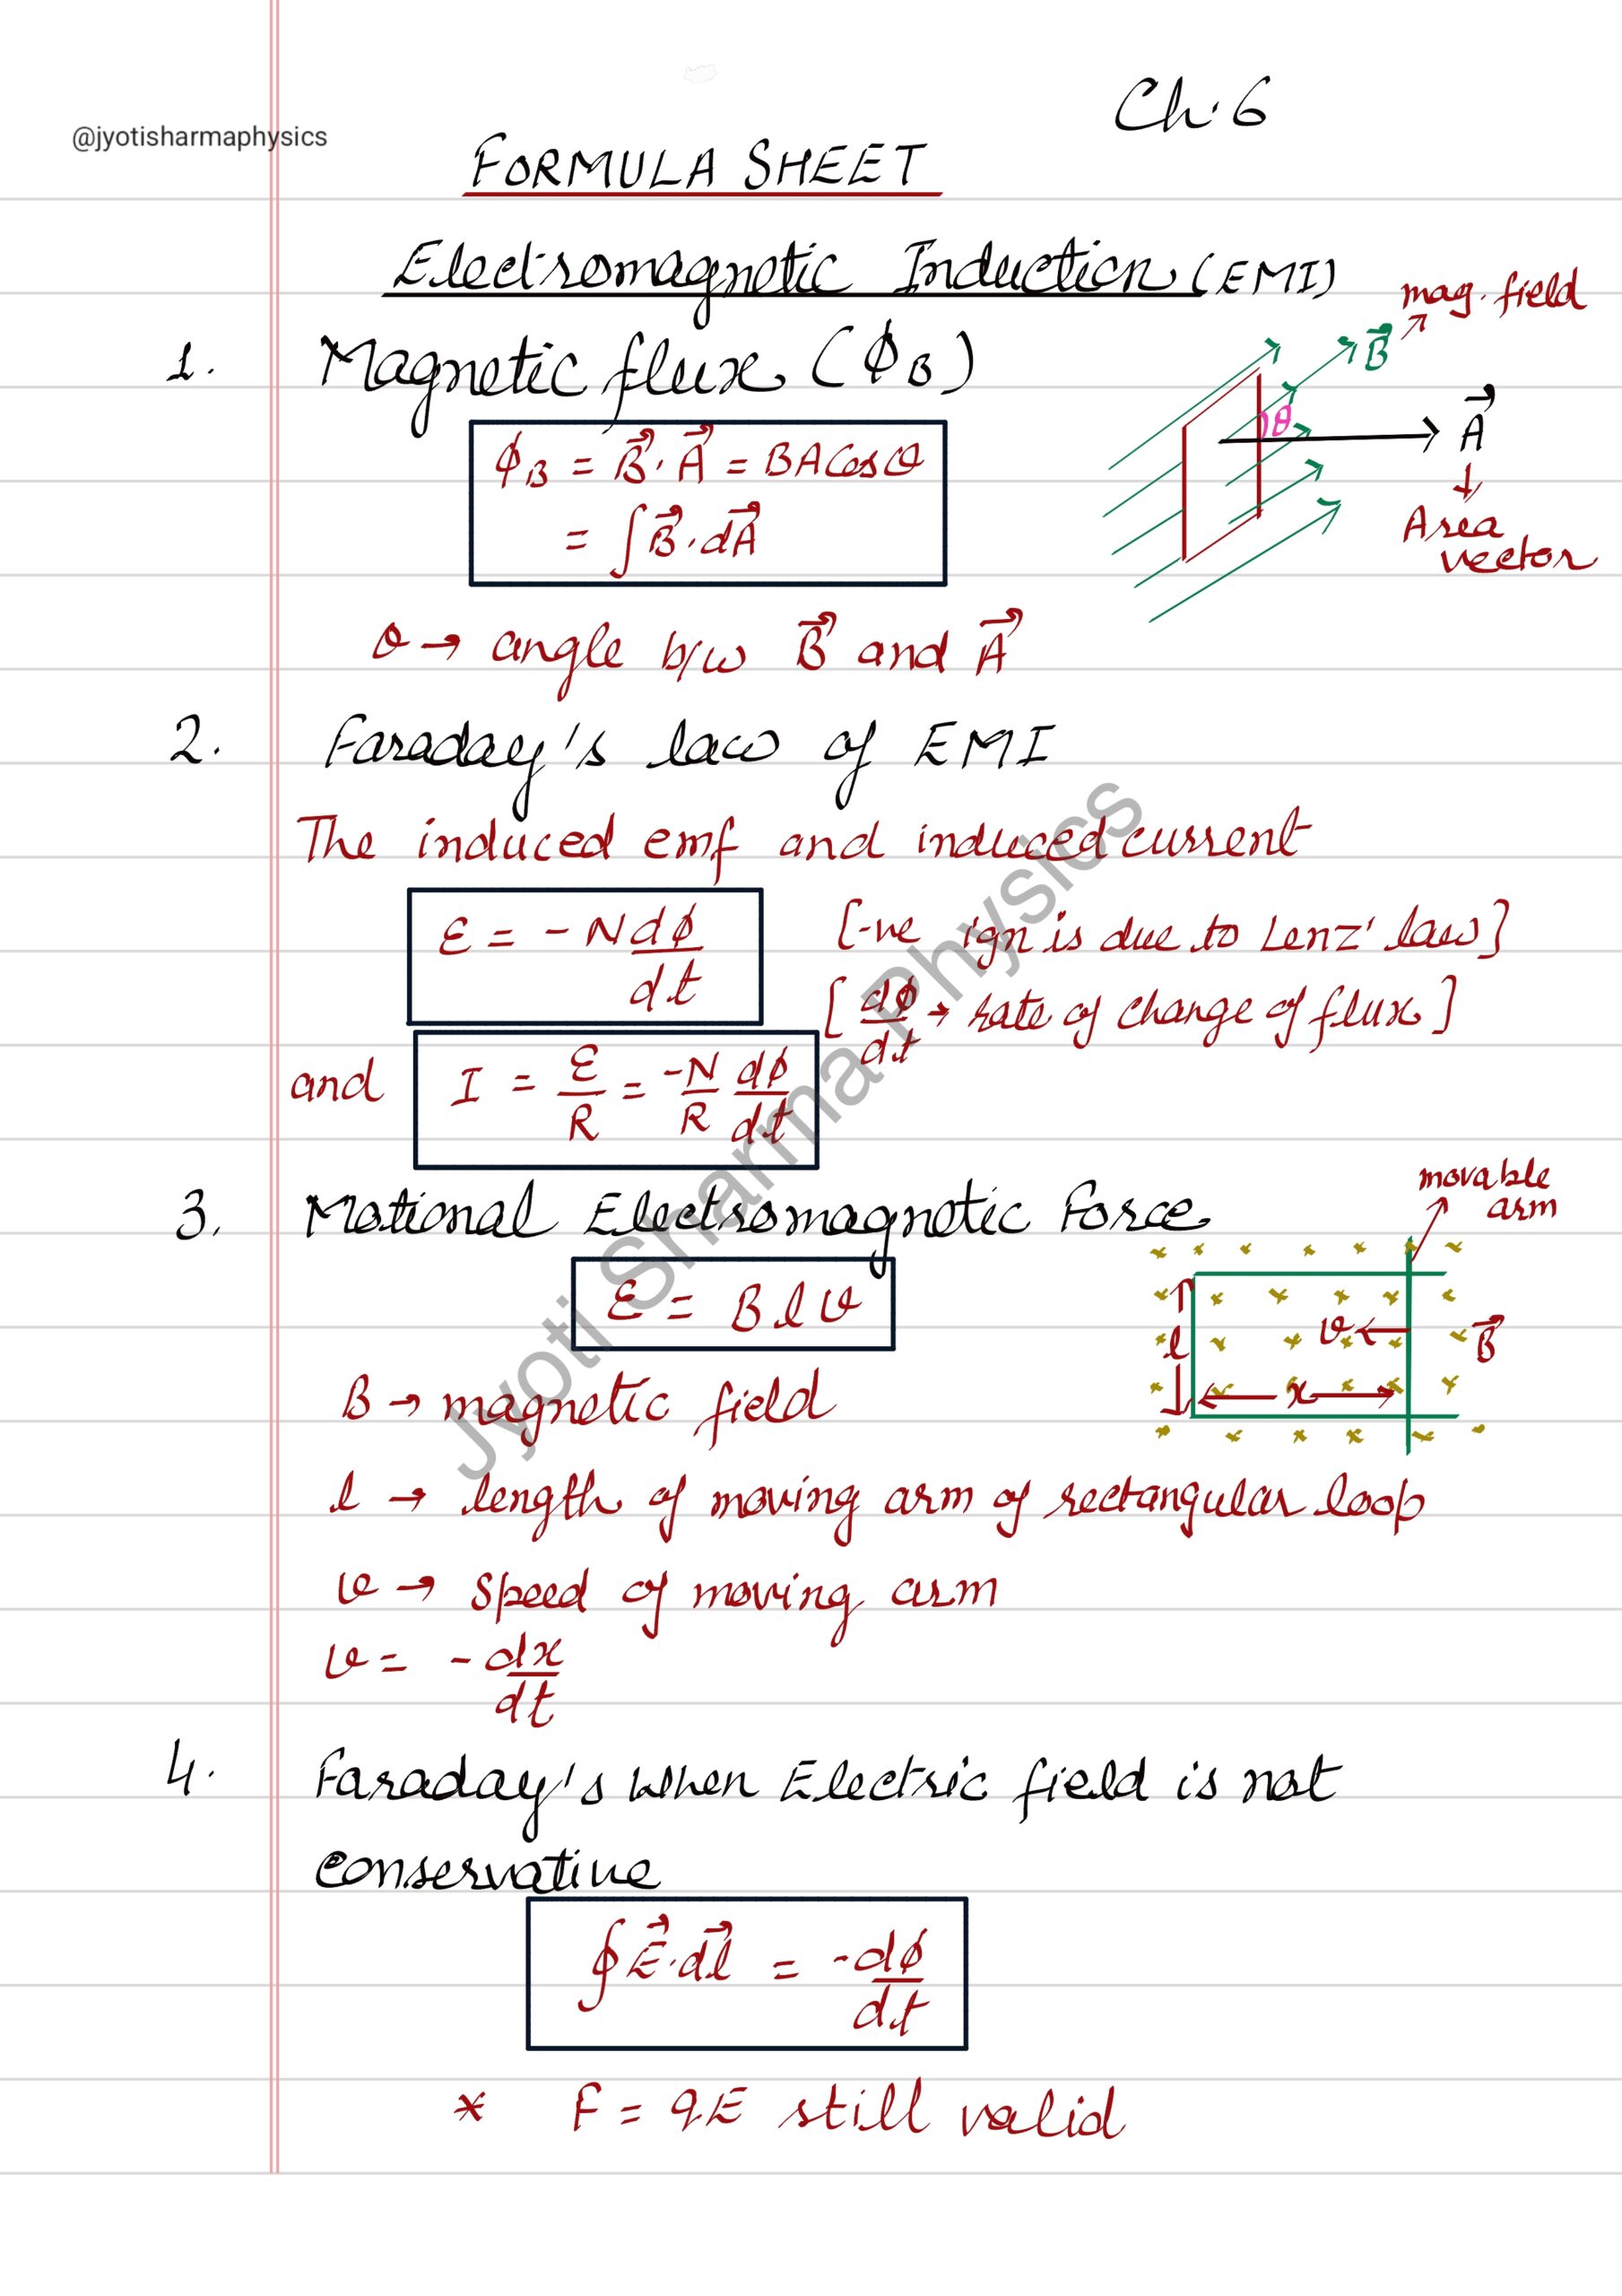 Ch:6
@jyotisharmaphysics
FORMULA SHEET
Electromagnetic Induction (EMI)
mag. field
B⃗
1. Magnetic flux (ϕ_B)
θ
A⃗
Area
vector
ϕ_B = B⃗.A⃗ = BACosθ
= ∫B⃗.dA⃗
θ → angle b/w B⃗ and A⃗
2. Faraday's law of EMI
The induced emf and induced current
ε = -N dϕ/dt
[-ve ign is due to Lenz' law]
[dϕ/dt → rate of change of flux]
and I = ε/R = -N/R dϕ/dt
3. Motional Electromagnetic Force
movable
arm
ε = Blv
l
v
B⃗
x
B → magnetic field
l → length of moving arm of rectangular loop
v → speed of moving arm
v = -dx/dt
4. Faraday's when Electric field is not
conservative
∮E⃗.dl⃗ = -dϕ/dt
* F = qE still valid
Jyoti Sharma Physics